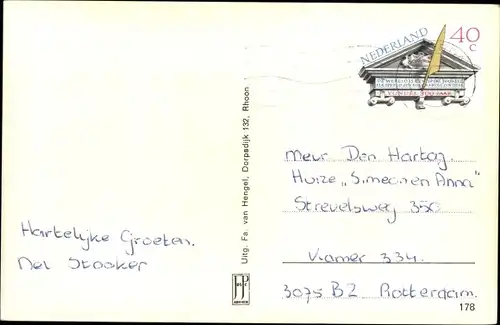 40
c
NEDERLAND
VONDEL 300 JAAR
Mevr Den Hartog.
Huize „Simeon en Anna"
Strevelsweg 350
Kamer 334.
3075 BZ Rotterdam.
Hartelijke Groeten.
Nel Stooker
Uitg. Fa. van Hengel, Dorpsdijk 132, Rhoon
JP
178